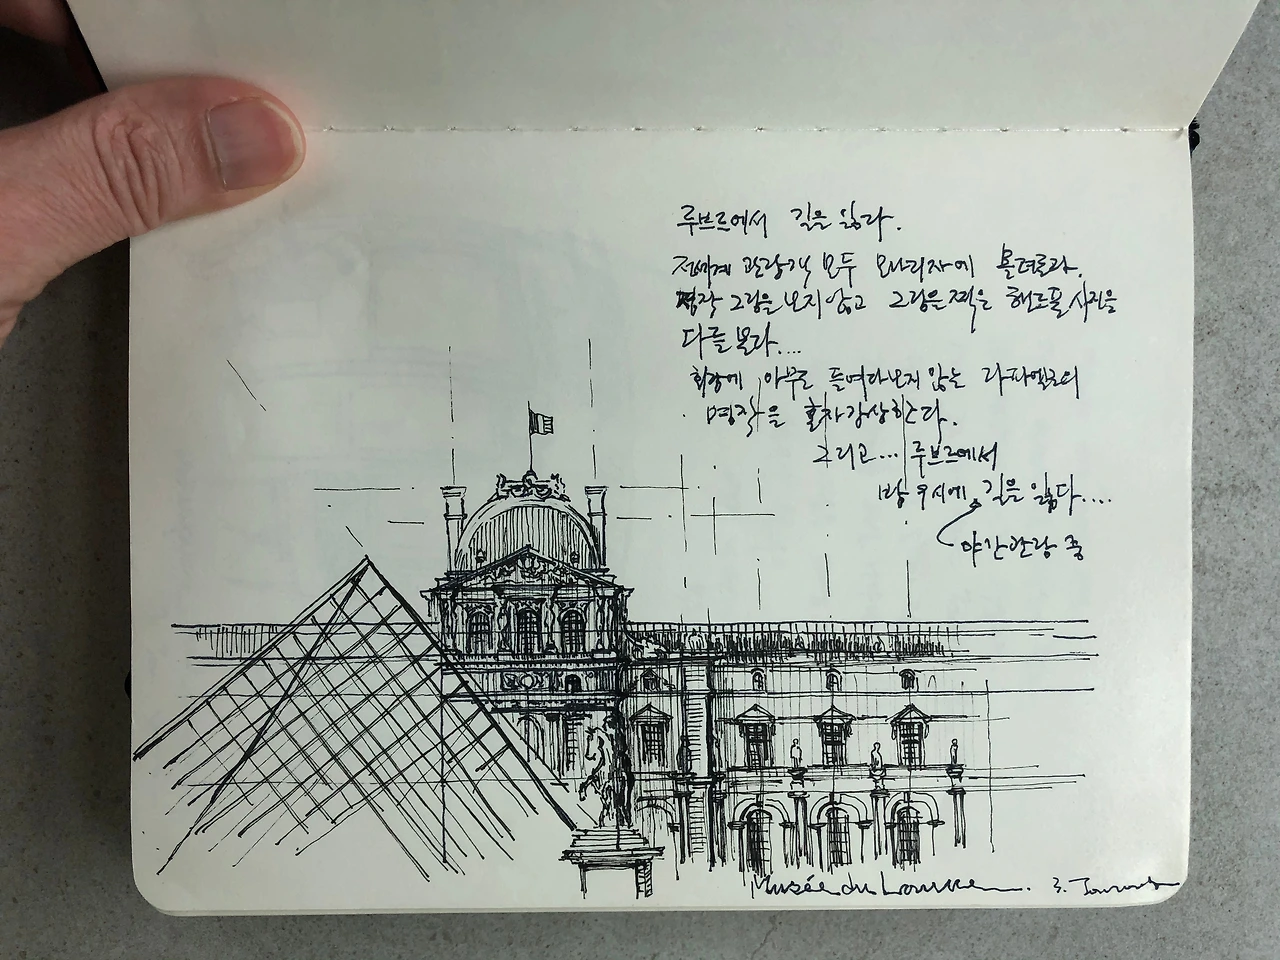 루브르에서 길을 잃다.
전세계 관광객 모두 모나리자에 몰려든다.
명작 그림을 보지 않고 그림을 찍은 핸드폰 사진을
다들 본다....
회랑에 아무도 들여다보지 않는 라파엘로의
명작을 혼자 감상한다.
그리고... 루브르에서
밤 9시에 길을 잃다....
야간관람 중
Musée du Louvre.